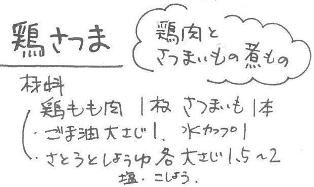 鶏さつま
鶏肉と
さつまいもの煮もの
材料
鶏もも肉 1枚 さつまいも1本
・ごま油大さじ1、水カップ1
・さとうとしょうゆ各大さじ1.5～2
塩・こしょう